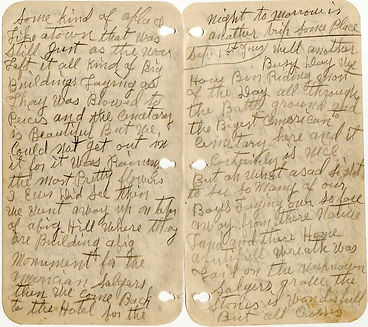 Some Kind of a place
Like a town that was
Still Just as the war
Left it all Kind of Big
Buildings Laying as
Thay was Blowd to
Peices and the Cemetary
is Beautiful But We,
Could not get out in
it for it Was Raining
the most Pretty flowers
I Ever did See then
We Went away up on top
of a big Hill Where thay
are Building a big
Monument for the
American Solgers
then We Came Back
to the Hotel for the
Night to morrow is
another trip Some Place
Well another
Busy Day We
Have Bin Riding most
of the Day all through
the Battle ground and
the Bigest American
Cemetary here and it
is Nice
But oh What a sad Sight
to See So Many of our
Boys Laying our So far
away from there Native
Land and there Home
a Wreath Was
Laid on the unknown
Solgers grave the
Stones is Wonderful
But all Crosses